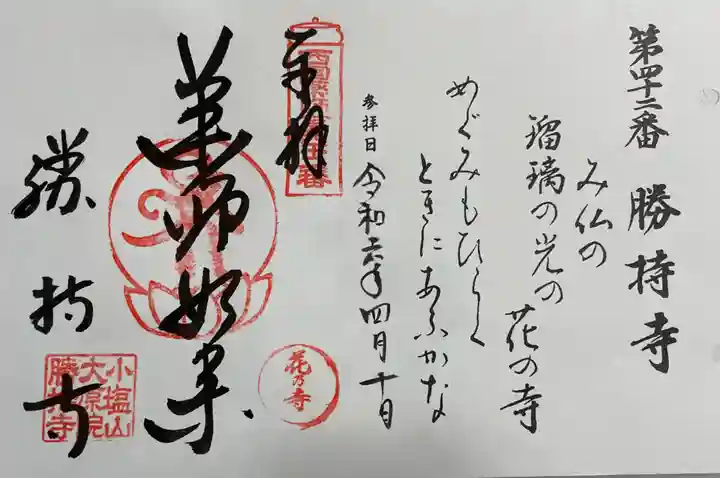 第四十二番 勝持寺
み仏の
瑠璃の光の
花の寺
めぐみもひらく
ときにあふかな
参拝日 令和六年四月十日
奉拝
薬師如来
花乃寺
勝持寺
小塩山
大原院
勝持寺